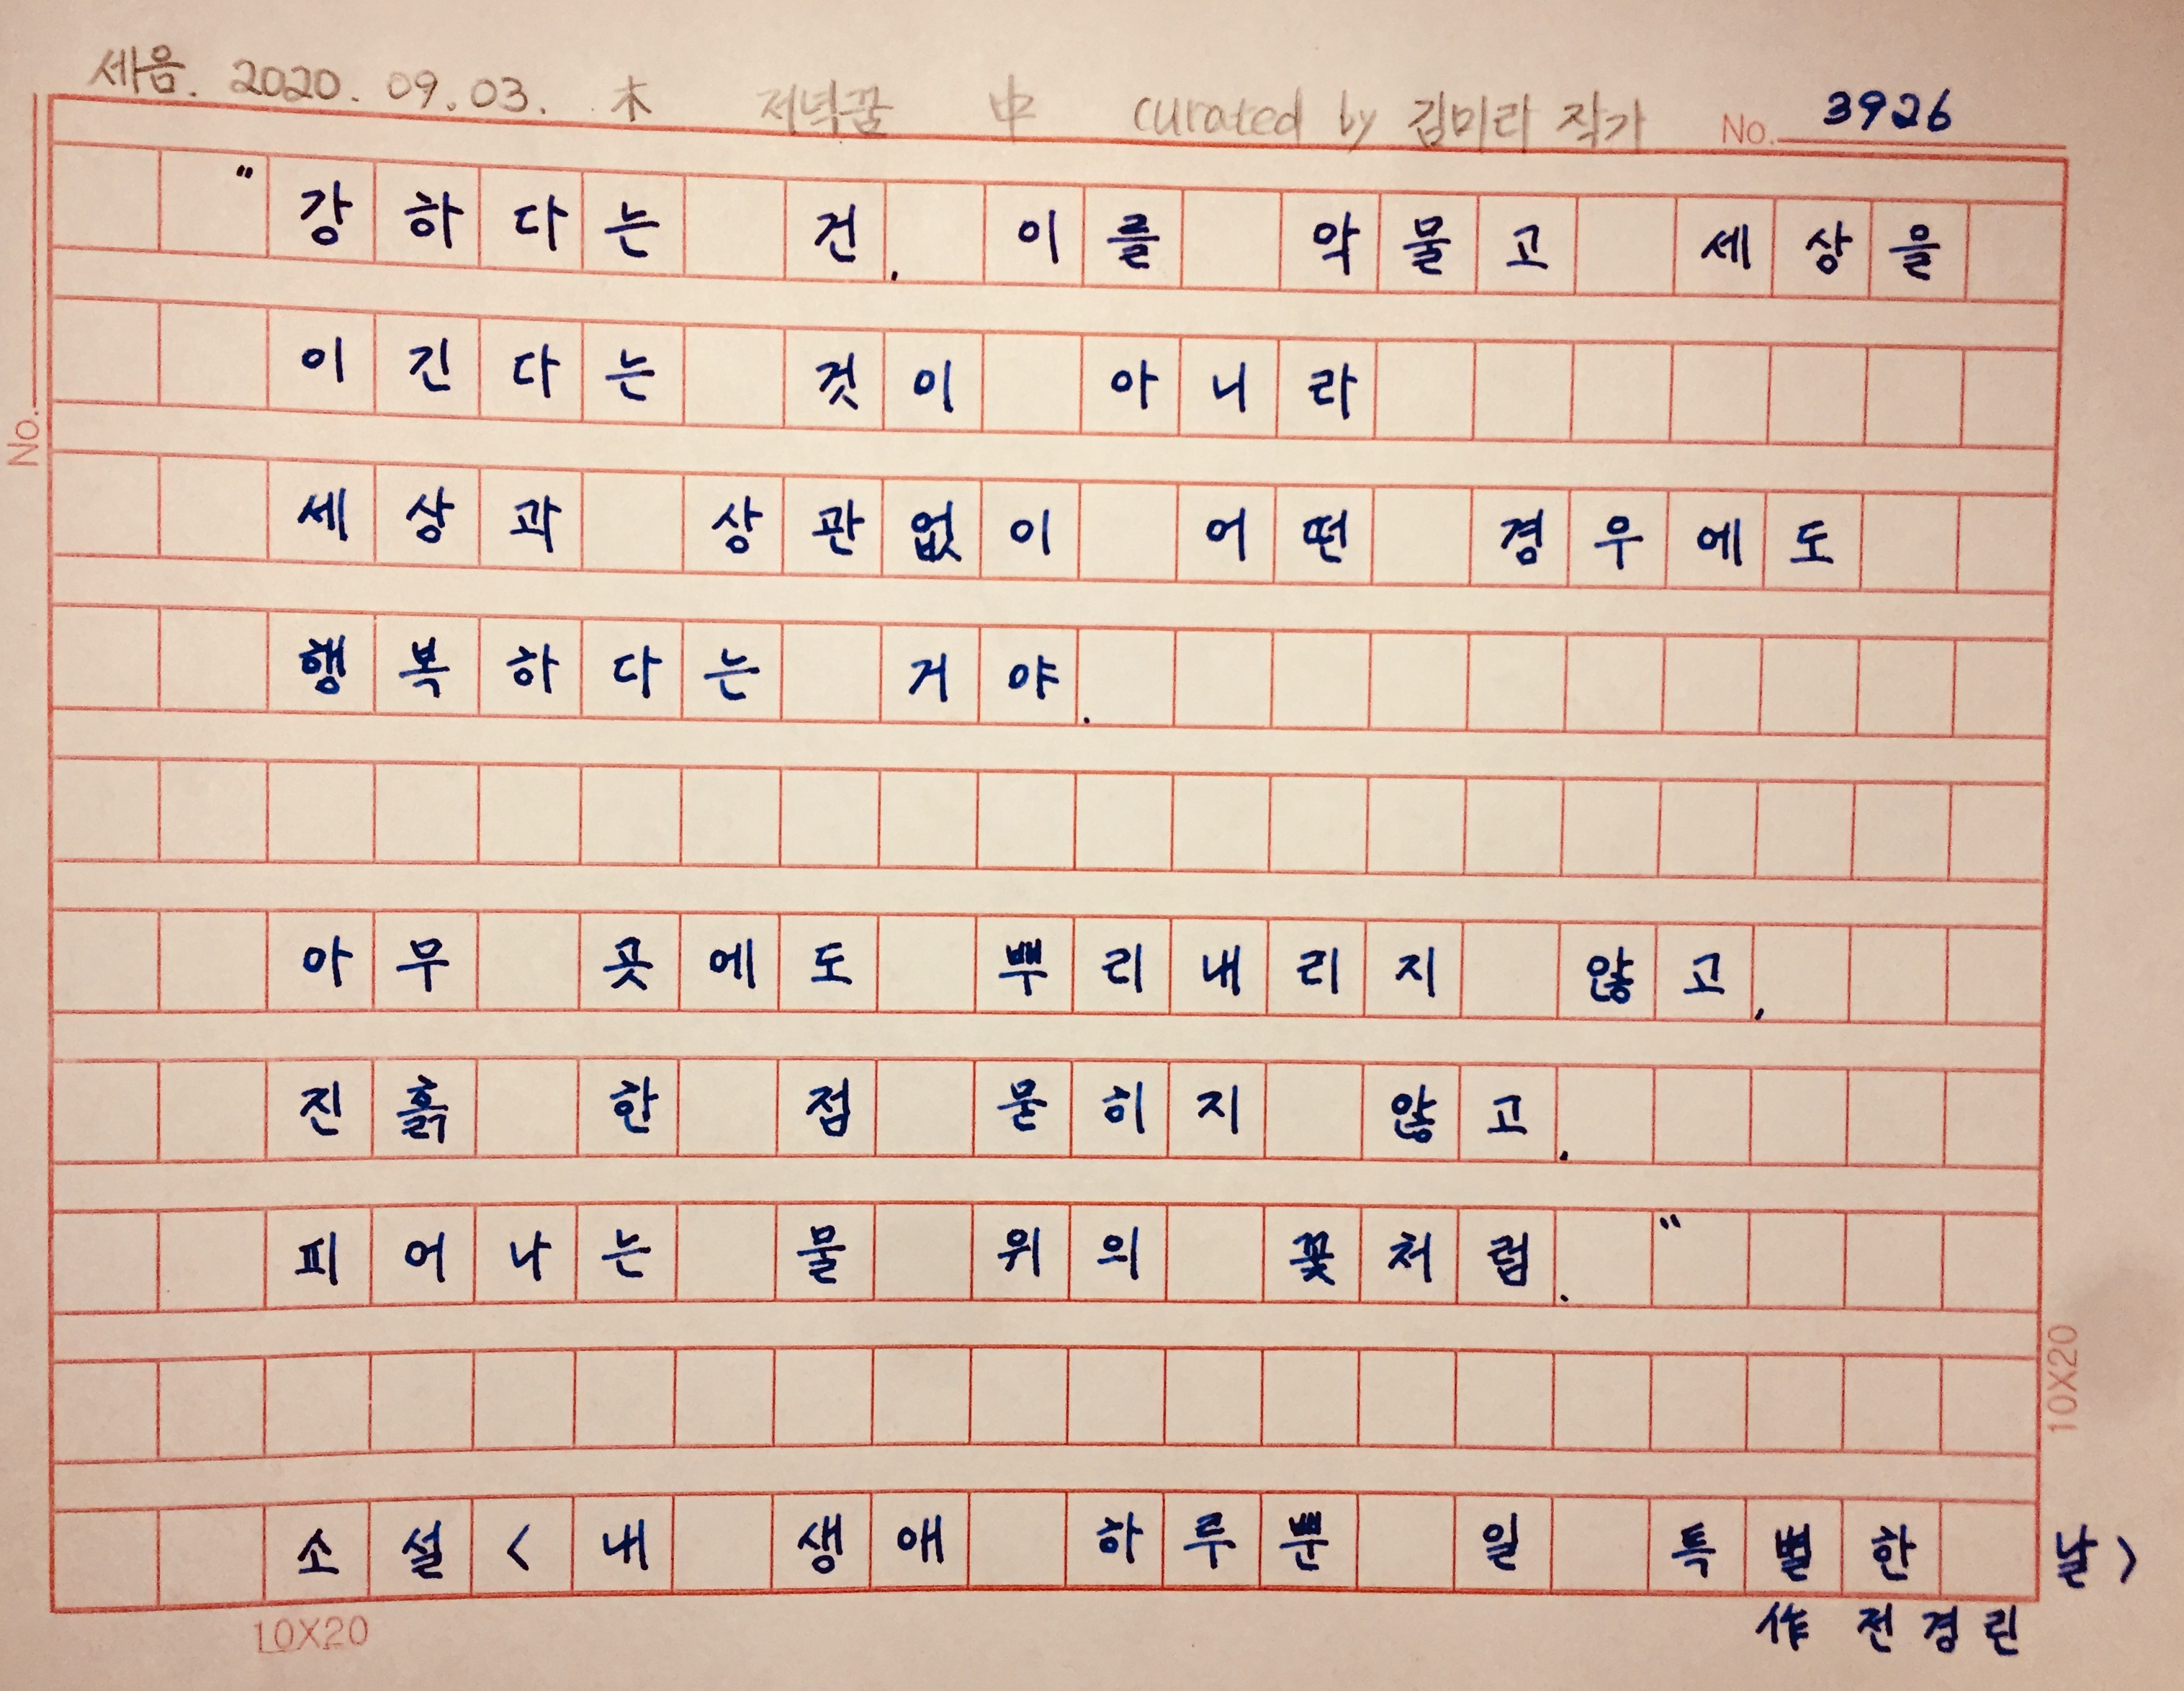 세음. 2020. 09. 03. 木 저녁꿈 中 curated by 김미라 작가 No. 3926
"강하다는 건, 이를 악물고 세상을
이긴다는 것이 아니라
No.
세상과 상관없이 어떤 경우에도
행복하다는 거야.
아무 곳에도 뿌리내리지 않고,
진흙 한 점 묻히지 않고,
피어나는 물 위의 꽃처럼."
10X20
소설 <내 생애 하루뿐 일 특별한 날>
作 전경린
10X20